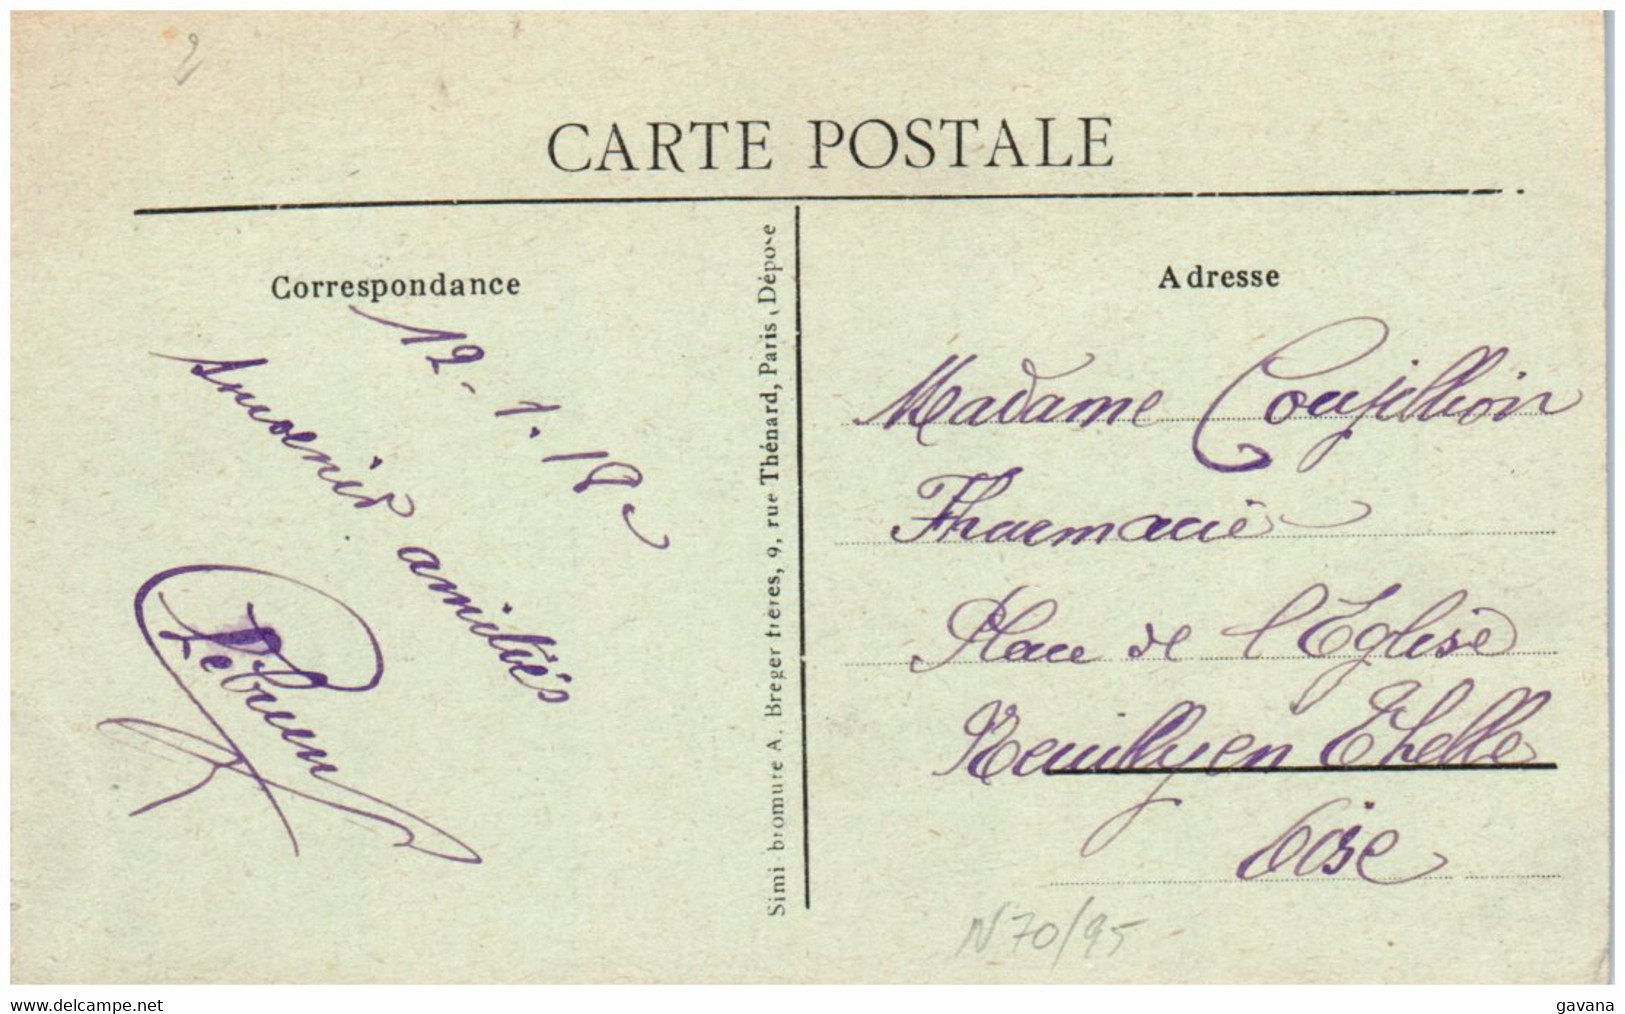 CARTE POSTALE
Correspondance
12-1.18
Souvenir amitiés
Lebrun
Simi-bromure A. Breger frères, 9, rue Thénard, Paris, Déposé
Adresse
Madame
Pharmacie
Place de l'Eglise
Neuilly en Thelle
Oise
N70/95
www.delcampe.net
gavana